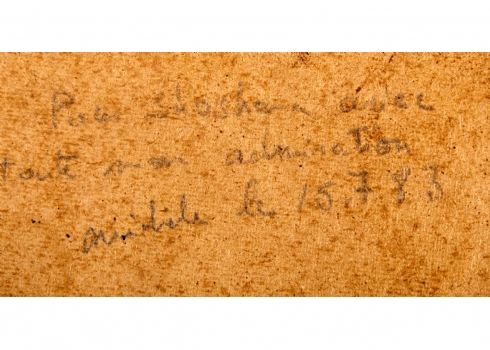 Pour Shoshana avec
toute mon admiration
Michèle le 15.7.83